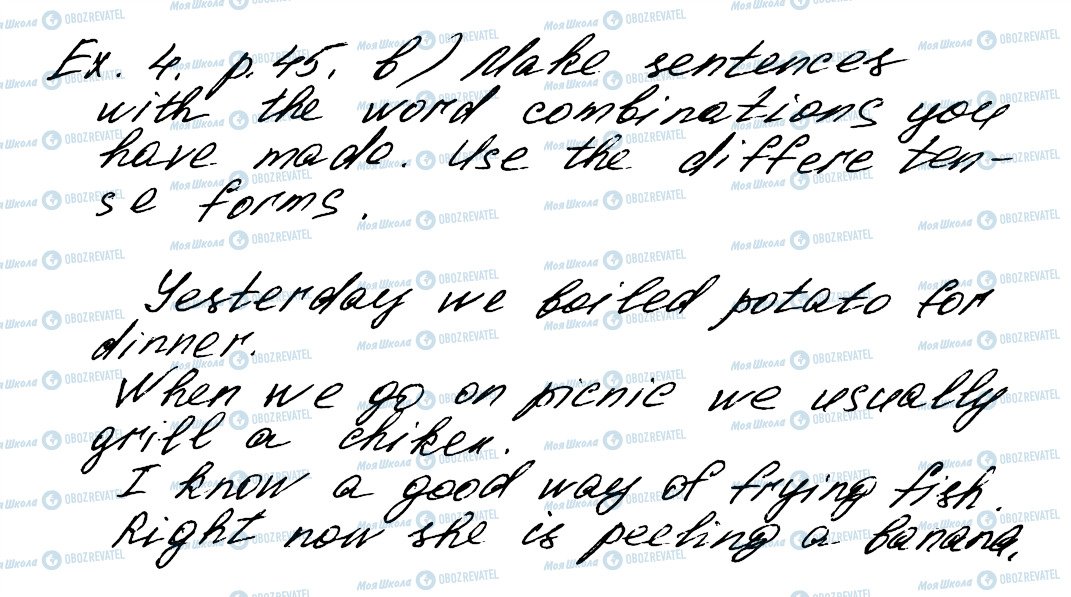 Ex. 4. p.45. b) Make sentences
with the word combinations you
have made. Use the differe ten-
se forms.
Yesterday we boiled potato for
dinner.
When we go on picnic we usually
grill a chiken.
I know a good way of frying fish.
Right now she is peeling a banana.
Моя Школа OBOZREVATEL